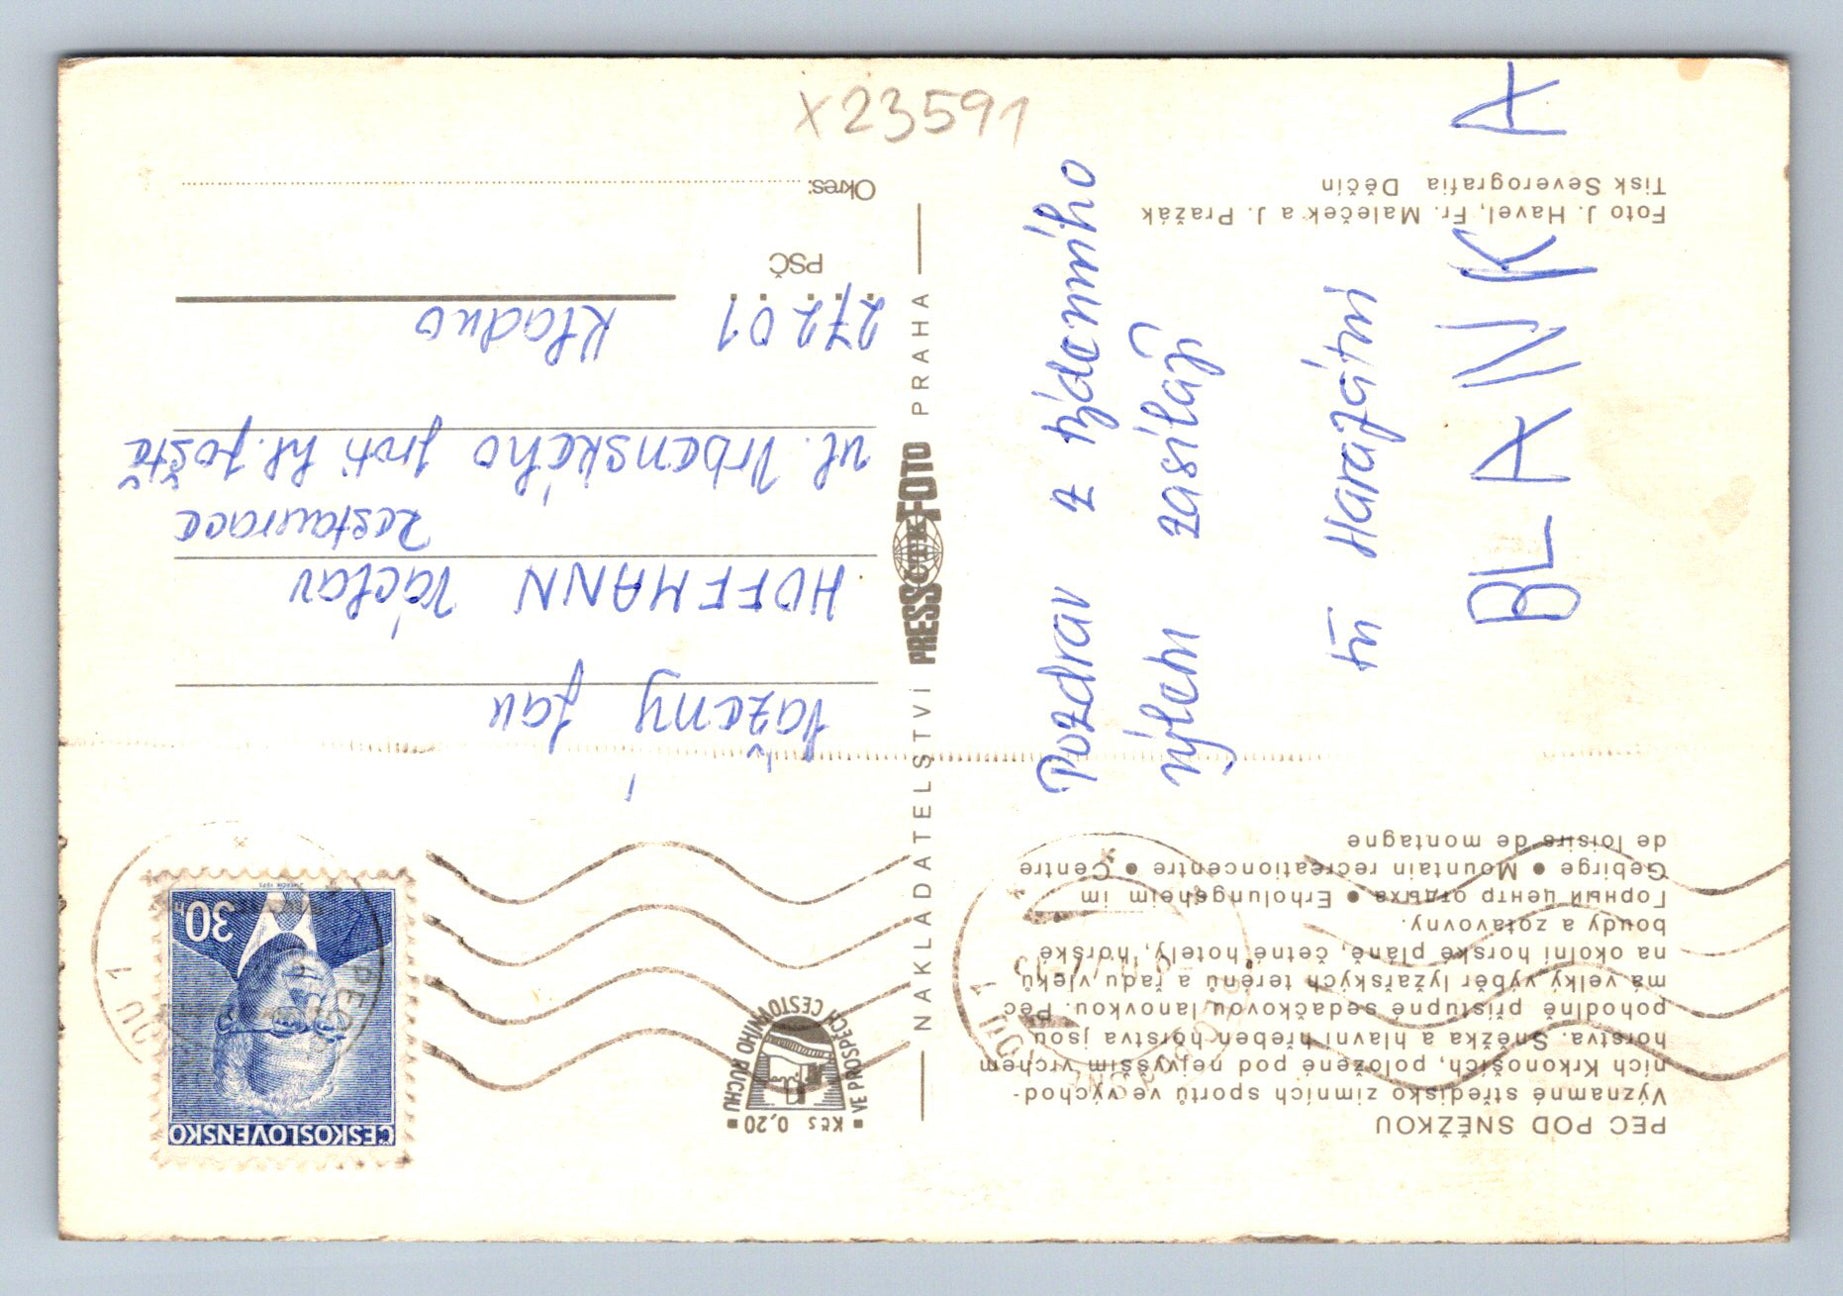 X23591
PEC POD SNĚŽKOU
Významné středisko zimních sportů ve východ-
ních Krkonoších, položené pod nejvyšším vrchem
horstva. Sněžka a hlavní hřeben horstva jsou
pohodlně přístupné sedačkovou lanovkou. Pec
má velký výběr lyžařských terénů a řadu vleků
na okolní horské pláně, četné hotely, horské
boudy a zotavovny.
Горный центр отдыха • Erholungsheim im
Gebirge • Mountain recreation centre • Centre
de loisirs de montagne
Pozdrav z týdenního
výletu zasílají
BLANKA
Foto J. Havel, Fr. Maleček a J. Pražák
Tisk Severografia Děčín
NAKLADATELSTVÍ PRESSFOTO PRAHA
ČTK
Kčs 0,20
VE PROSPĚCH CESTOVNÍHO RUCHU
ČESKOSLOVENSKO
30h
PEC
Vážený pan
HOFFMANN Václav
restaurace
ul. Vrbenského proti hl. poště
272 01 Kladno
PSČ
Okres: